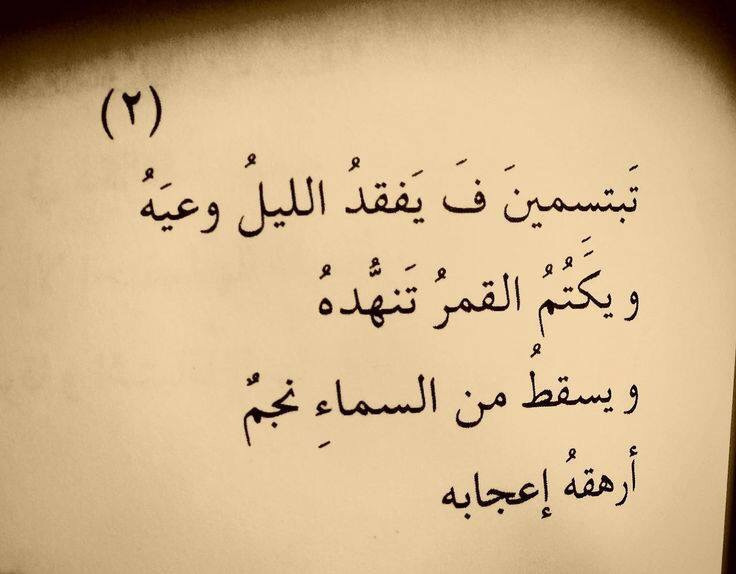 (٢)
تَبتسمينَ فَ يَفقدُ الليلُ وعيَهُ
و يَكَتُمُ القمرُ تَنهُّدهُ
و يسقطُ من السماءِ نجمٌ
أرهقهُ إعجابه